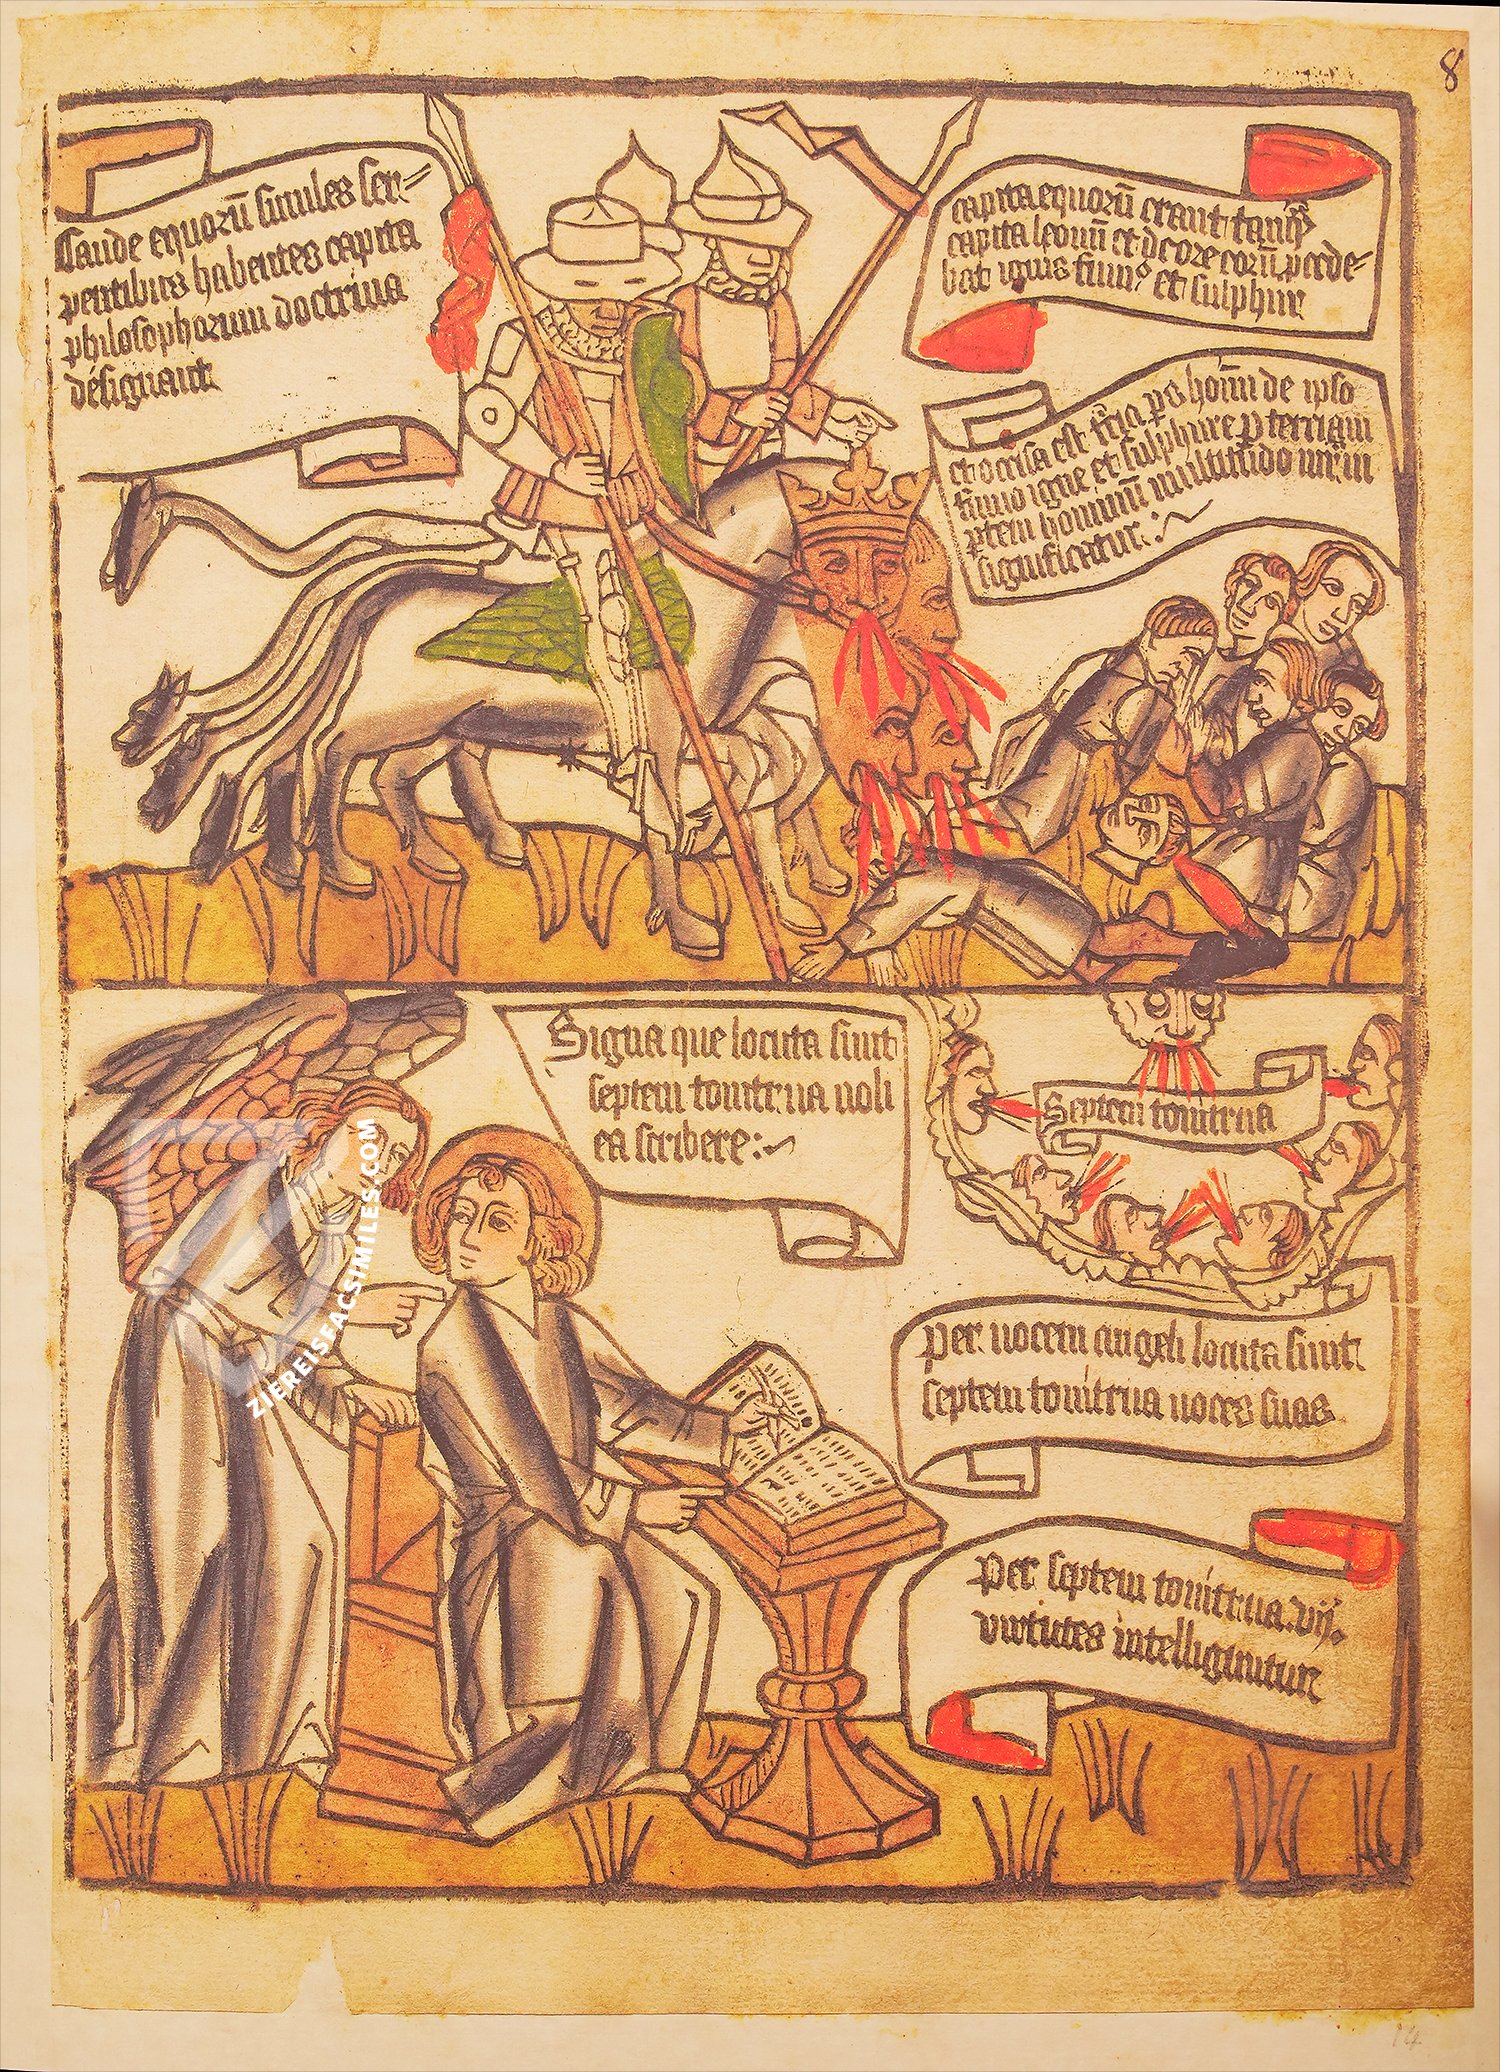 8
Caude equorū similes ser=
pentibus habentes capita
philosophorum doctrina
designant
capita equorū erant tanq̄
capita leonū et de ore eorū p̲cede=
bat ignis fumꝰ et sulphur
et occisa est t̄cia ps hoīm de ipso
fumo igne et sulphure p̲ terciam
p̲tem hominū multitudo
significatur:
Signa que locuta sunt
septem tonitrua noli
ea scribere:
Septem tonitrua
Per vocem angeli locuta sunt
septem tonitrua voces suas
Per septem tonitrua .vij.
virtutes intelliguntur
ZIEREISFACSIMILES.COM
14